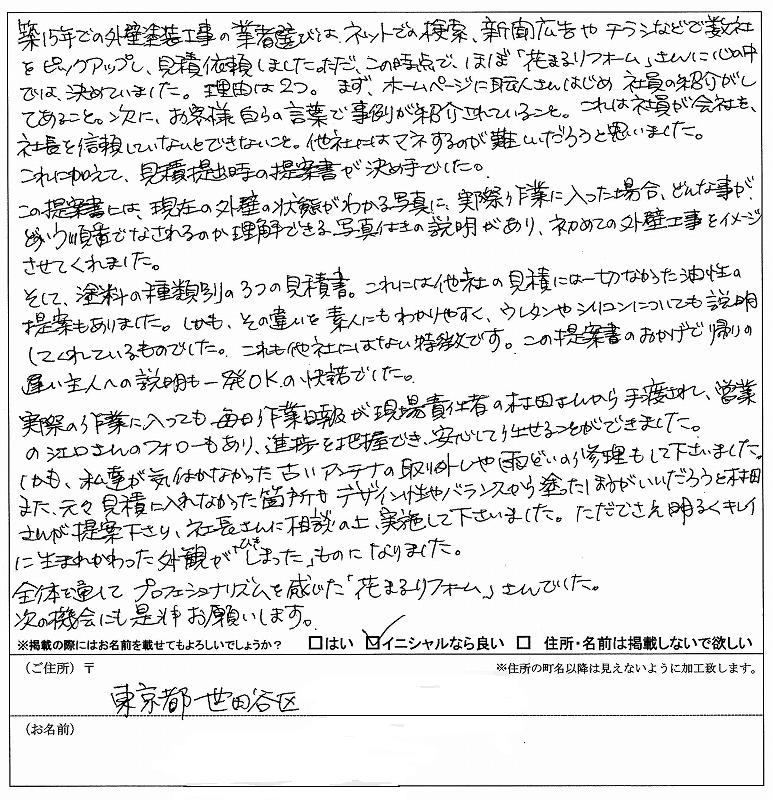 築15年での外壁塗装工事の業者選びは、ネットでの検索、新聞広告やチラシなどで数社
をピックアップし、見積依頼しました。ただ、この時点で、ほぼ「花まるリフォーム」さんに心の中
では、決めていました。理由は2つ。まず、ホームページに職人さんはじめ社員の紹介がし
てあること。次に、お客様自らの言葉で事例が紹介されていること。これは社員が会社を、
社長を信頼していないとできないこと。他社にはマネするのが難しいだろうと思いました。
これに加えて、見積提出時の提案書が決め手でした。
この提案書には、現在の外壁の状態がわかる写真に、実際作業に入った場合、どんな事が、
どういう順番でなされるのか理解できる写真付きの説明があり、初めての外壁工事をイメージ
させてくれました。
そして、塗料の種類別の3つの見積書。これには他社の見積には一切なかった油性の
提案もありました。しかも、その違いを素人にもわかりやすく、ウレタンやシリコンについても説明
してくれているものでした。これも他社にはない特徴です。この提案書のおかげで帰りの
遅い主人への説明も一発OKの快諾でした。
実際の作業に入っても、毎日作業日報が現場責任者の村田さんから手渡され、営業
の江口さんのフォローもあり、進捗を把握でき、安心して任せることができました。
しかも、私達が気付かなかった古いアンテナの取り外しや雨どいの修理もして下さいました。
また、元々見積に入れなかった箇所もデザイン性やバランスから塗ったほうがいいだろうと村田
さんが提案下さり、社長さんに相談の上、実施して下さいました。ただでさえ明るくキレイ
に生まれかわった外観が"ひきしまった"ものになりました。
全体を通して プロフェショナリズムを感じた「花まるリフォーム」さんでした。
次の機会にも是非お願いします。
※掲載の際にはお名前を載せてもよろしいでしょうか? □はい ☑イニシャルなら良い □ 住所・名前は掲載しないで欲しい
(ご住所) 〒 ※住所の町名以降は見えないように加工致します。
東京都世田谷区
(お名前)